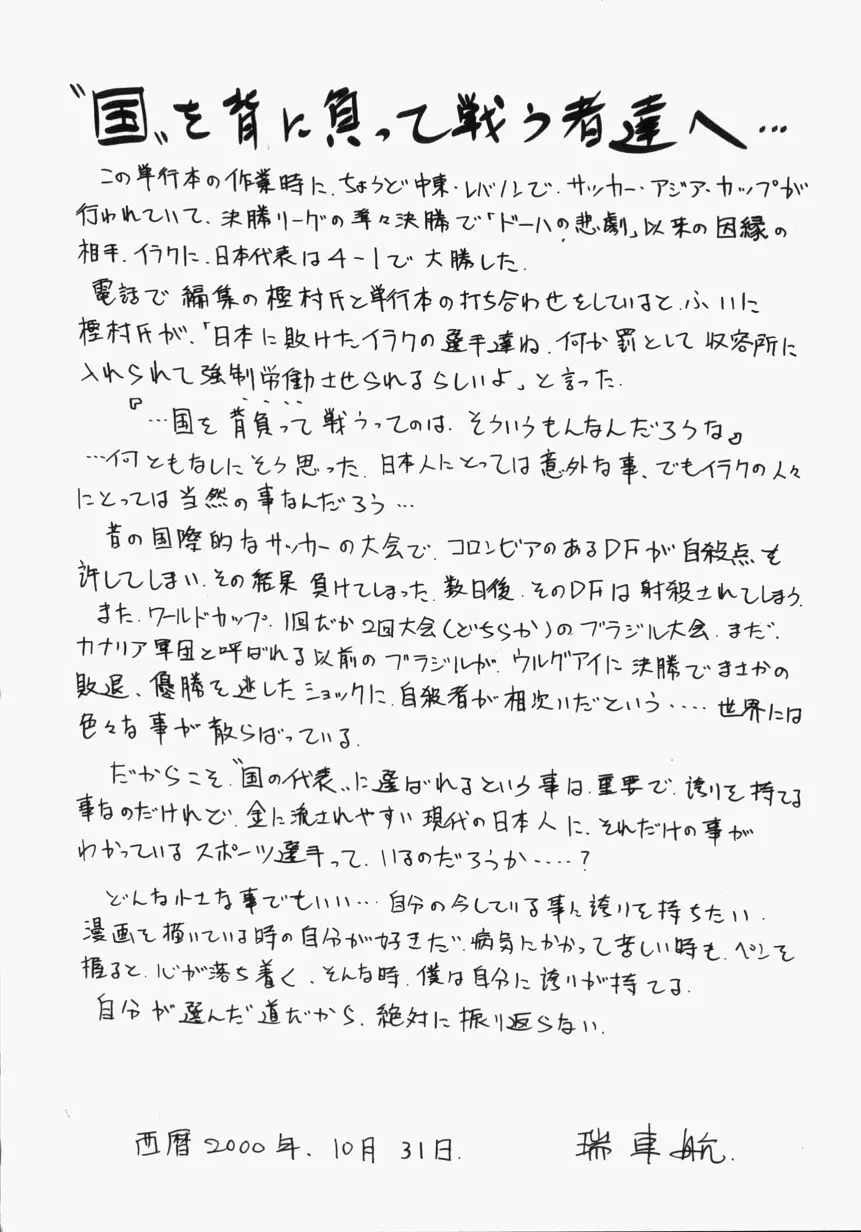 〝国〟を背に負って戦う者達へ…
この単行本の作業時に、ちょうど中東・レバノンで、サッカー・アジア・カップが
行われていて、決勝リーグの準々決勝で「ドーハの悲劇」以来の因縁の
相手、イラクに、日本代表は4-1で大勝した。
電話で編集の樫村氏と単行本の打ち合わせをしていると、ふいに
樫村氏が、「日本に敗けたイラクの選手達ね、何か罰として収容所に
入れられて強制労働させられるらしいよ」と言った。
『…国を背負って戦うってのは、そういうもんなんだろうな』
…何ともなしにそう思った。日本人にとっては意外な事、でもイラクの人々
にとっては当然の事なんだろう…
昔の国際的なサッカーの大会で、コロンビアのあるDFが自殺点を
許してしまい、その結果負けてしまった。数日後、そのDFは射殺されてしまう。
また、ワールドカップ、1回だか2回大会(どちらか)のブラジル大会、まだ、
カナリア軍団と呼ばれる以前のブラジルが、ウルグアイに決勝でまさかの
敗退、優勝を逃したショックに、自殺者が相次いだという‥‥世界には
色々な事が散らばっている。
だからこそ、〝国の代表〟に選ばれるという事は、重要で、誇りを持てる
事なのだけれど、金に流されやすい現代の日本人に、それだけの事が
わかっているスポーツ選手って、いるのだろうか‥‥?
どんな小さな事でもいい…自分の今している事に誇りを持ちたい。
漫画を描いている時の自分が好きだ、病気にかかって苦しい時も、ペンを
握ると、心が落ち着く、そんな時、僕は自分に誇りが持てる。
自分が選んだ道だから、絶対に振り返らない。
西暦2000年、10月31日.
瑞車航.